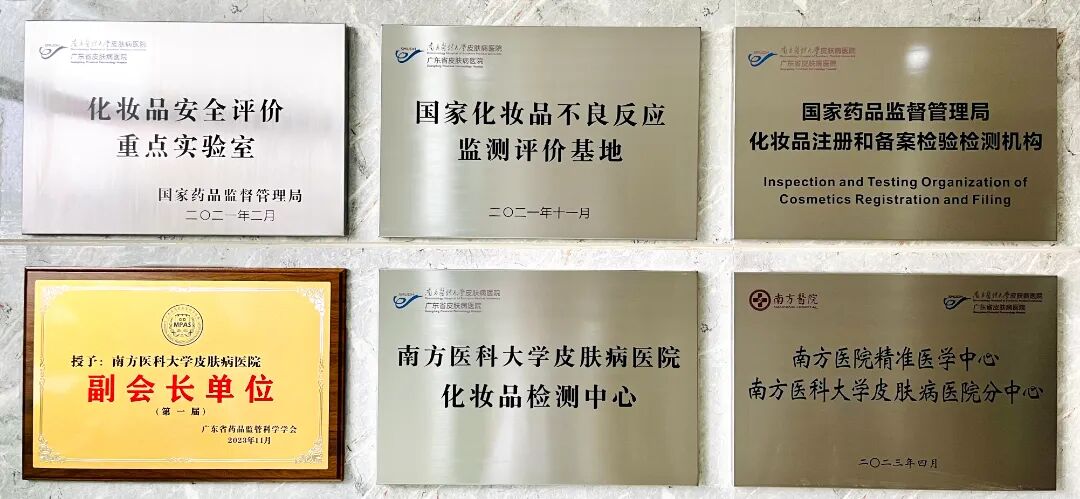 SMUDH
南方医科大学皮肤病医院
广东省皮肤病医院
化妆品安全评价
重点实验室
国家药品监督管理局
二〇二一年二月
SMUDH
南方医科大学皮肤病医院
广东省皮肤病医院
国家化妆品不良反应
监测评价基地
二〇二一年十一月
SMUDH
南方医科大学皮肤病医院
广东省皮肤病医院
国家药品监督管理局
化妆品注册和备案检验检测机构
Inspection and Testing Organization of
Cosmetics Registration and Filing
MPAS
授予：南方医科大学皮肤病医院
副会长单位
（第一届）
广东省药品监管科学学会
2023年11月
SMUDH
南方医科大学皮肤病医院
广东省皮肤病医院
南方医科大学皮肤病医院
化妆品检测中心
南方醫院
NANFANG HOSPITAL
SMUDH
南方医科大学皮肤病医院
广东省皮肤病医院
南方医院精准医学中心
南方医科大学皮肤病医院分中心
二〇二三年四月